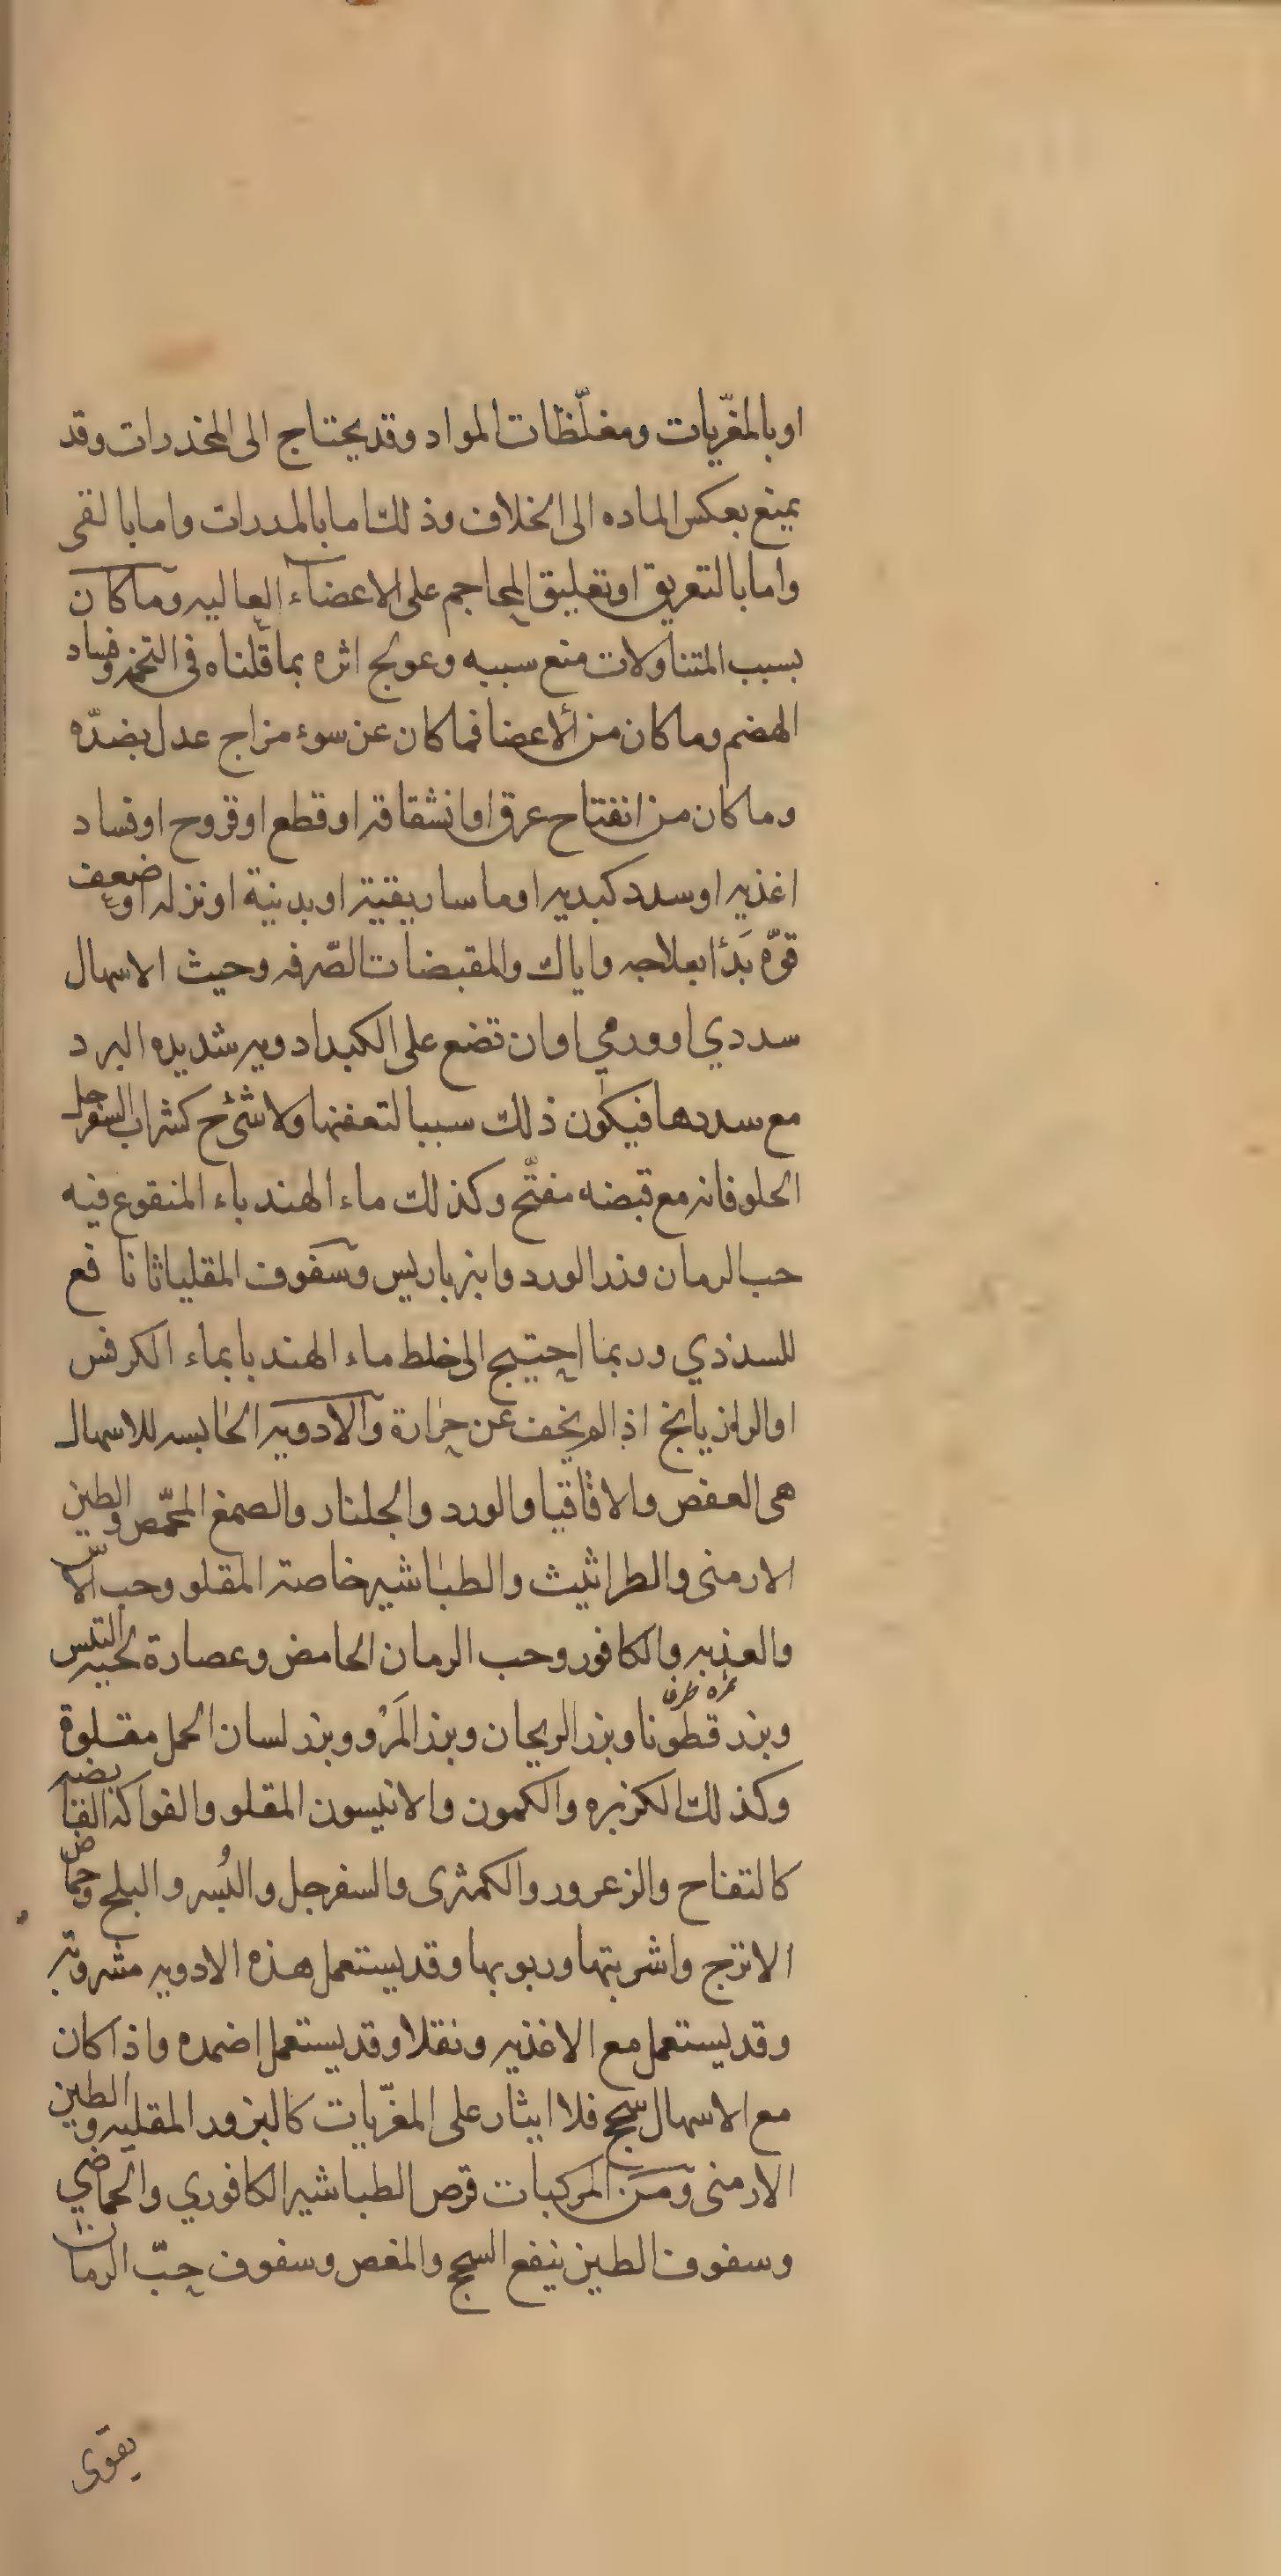 او بالمغرّيات ومغلّظات المواد وقد يحتاج الى المخدرات وقد
يمنع بعكس الماده الى الخلاف وذلك اما بالمدرات واما بالقى
واما بالتعريق او تعليق المحاجم على الاعضاء العاليه وما كان
بسبب المتناولات منع سببه وعولج اثره بما قلناه فى التخمه وفساد
الهضم وما كان من الأعضا فما كان عن سوء مزاج عدل بضدّه
وما كان من انفتاح عرق او انشقاقه او قطع او قروح او فساد
اغذيه او سدد كبديه او ماساريقيّة او بدنية او نزله او ضعف
قوّه بَدَأ بعلاجه واياك والمقبضات الصّرفه وحيث الاسهال
سددي او ورمي او ان تضع على الكبد ادويه شديده البرد
مع سددها فيكون ذلك سببا لتعفنها ولا شئ ح كشراب السفرجل
الحلو فانه مع قبضه مفتّح وكذلك ماء الهندباء المنقوع فيه
حب الرمان وزر الورد وانبرباريس وسفوف المقلياثا نافع
للسددي وربما احتيج الى خلط ماء الهندبا بماء الكرفس
او الرازيانج اذا لم يخف عن حرارة والادويه الحابسه للاسهال
هى العفص والاقاقيا والورد والجلنار والصمغ المحمّص والطين
الارمنى والطراثيث والطباشير خاصة المقلو وحب الاس
والعذبه والكافور وحب الرمان الحامض وعصارة لحية التيس
ثمره طرفا
وبزر قطونا وبزر الريحان وبزر المَرْو وبزر لسان الحمل مقلوة
وكذلك الكزبره والكمون والانيسون المقلو والفواكه القابضه
كالتفاح والزعرور والكمثرى والسفرجل والبُسر والبلح وحماض
الاترج واشربتها وربوبها وقد يستعمل هذه الادويه مشروبة
وقد يستعمل مع الاغذيه ونقلا وقد يستعمل اضمده واذا كان
مع الاسهال سحج فلا ايثار على المغرّيات كالبزور المقليه والطين
الارمنى ومن المركبات قرص الطباشير الكافوري والحماضي
وسفوف الطين ينفع السحج والمغص وسفوف حبّ الرمان
يقوى